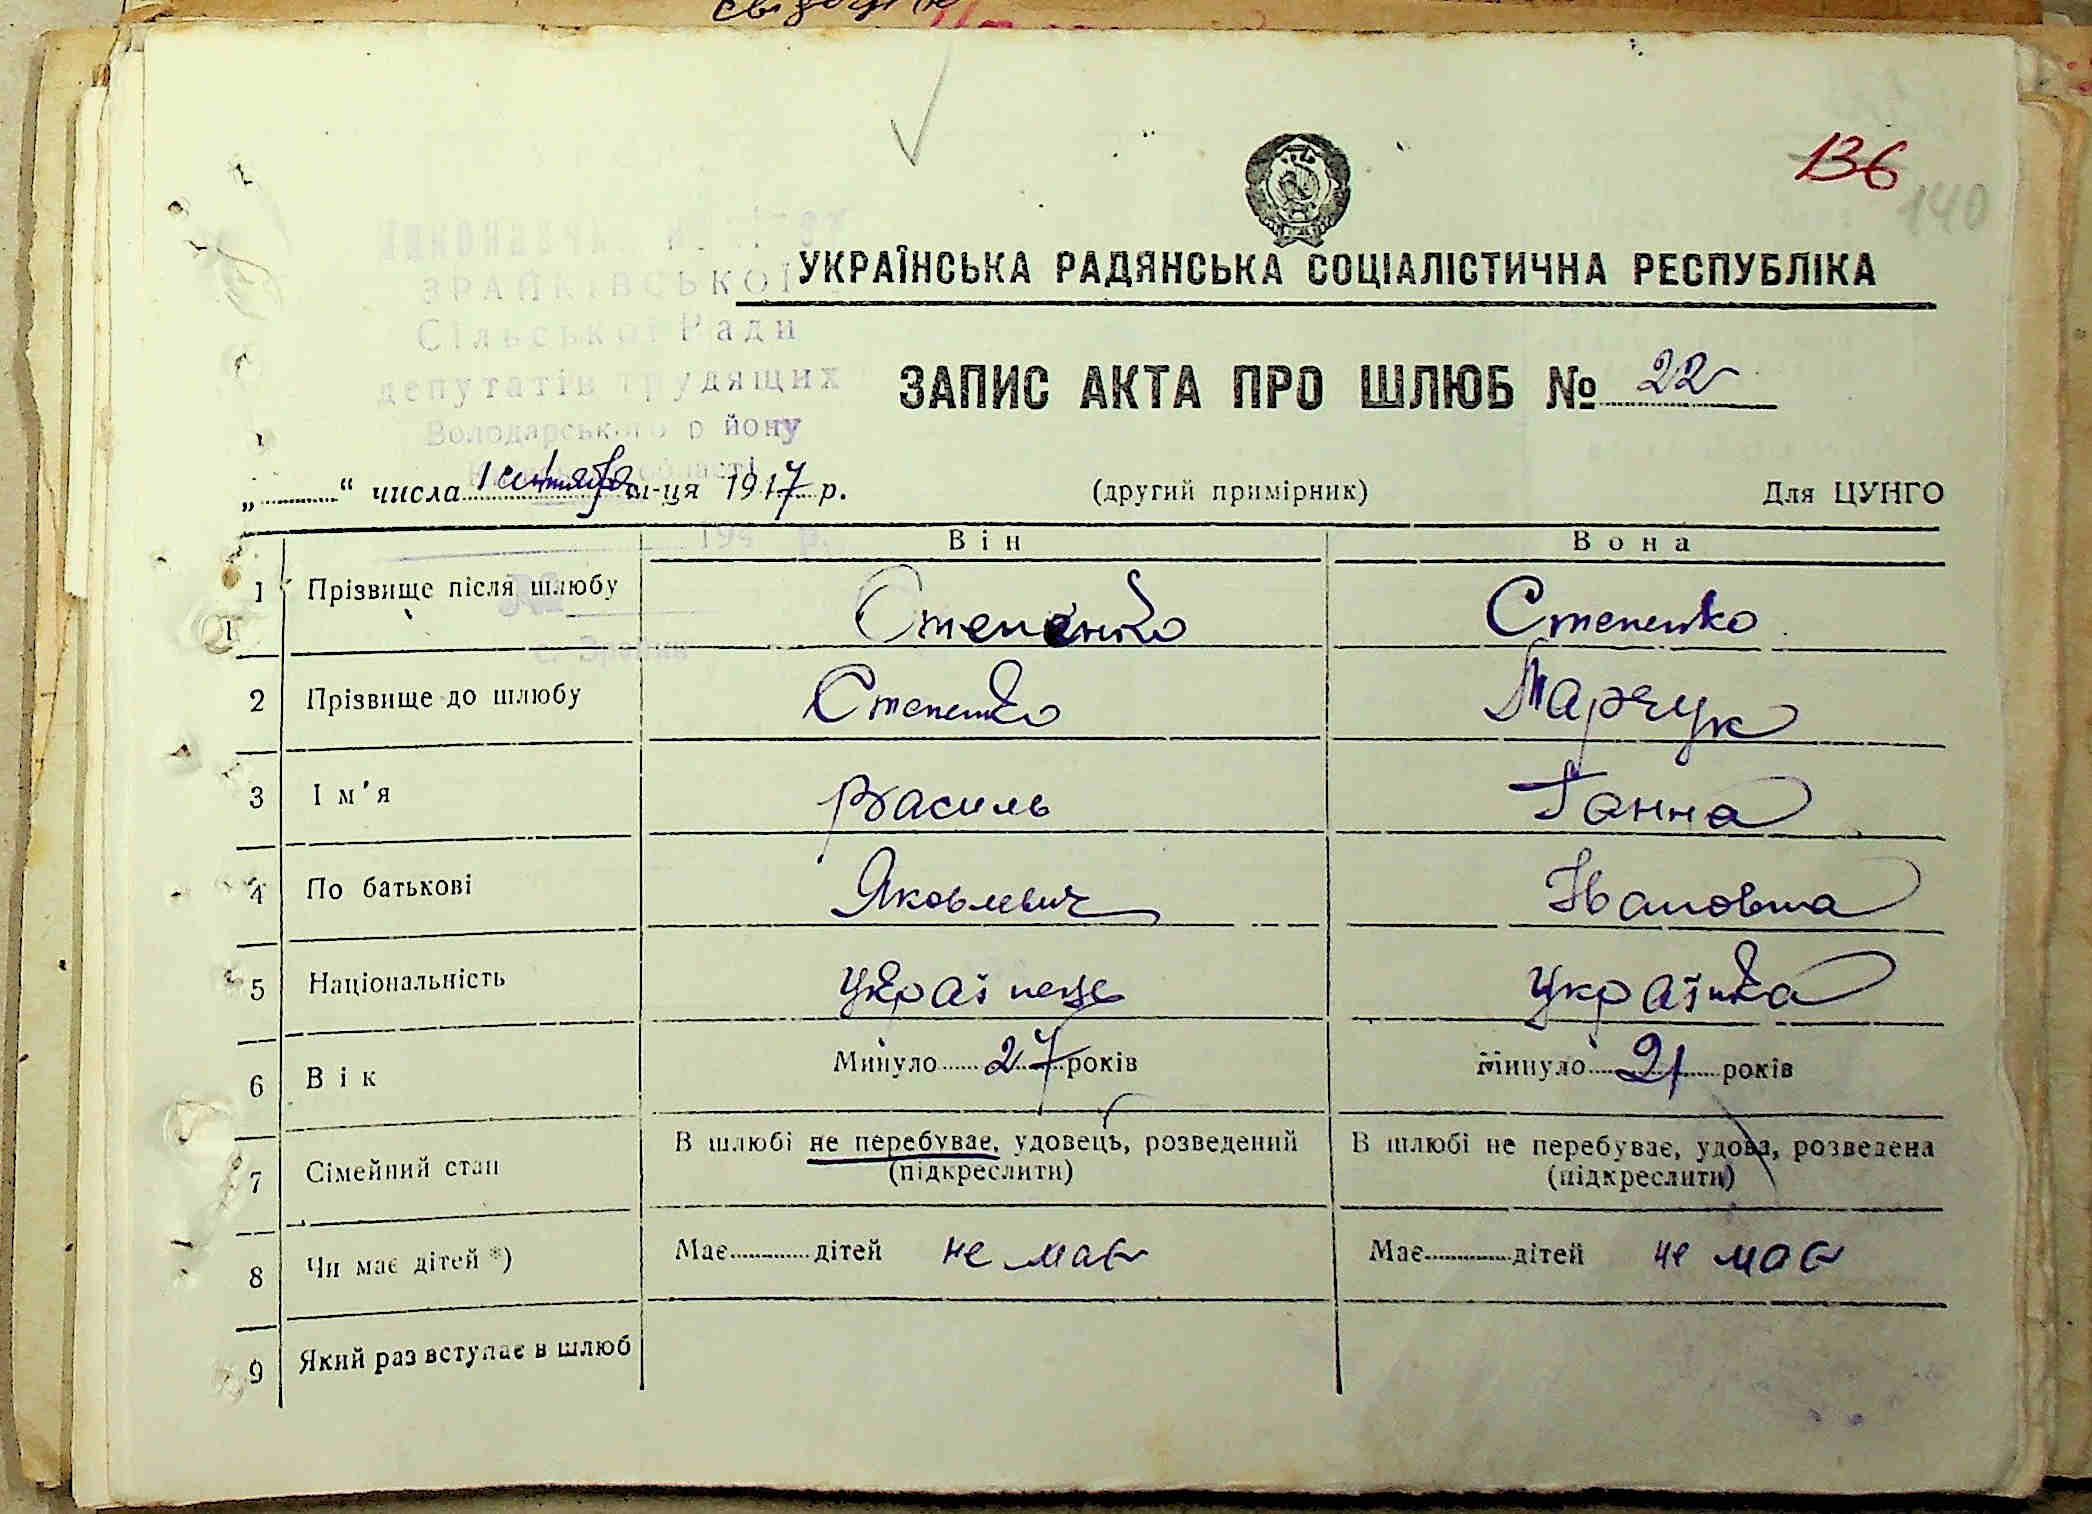 136
140
УКРАЇНСЬКА РАДЯНСЬКА СОЦІАЛІСТИЧНА РЕСПУБЛІКА
ЗРАЙКІВСЬКОЇ
Сільської Ради
депутатів трудящих
Володарського району
області
194 р.
№
ЗАПИС АКТА ПРО ШЛЮБ № 22
„ “ числа 1 сентября м-ця 1947 р. (другий примірник) Для ЦУНГО
Він Вона
1 Прізвище після шлюбу Степенко Степенко
2 Прізвище до шлюбу Степенко Марчук
3 Ім'я Василь Ганна
4 По батькові Яковлевич Івановна
5 Національність Українець Українка
6 Вік Минуло 27 років Минуло 21 років
7 Сімейний стан В шлюбі не перебуває, удовець, розведений (підкреслити) В шлюбі не перебуває, удова, розведена (підкреслити)
8 Чи має дітей *) Має дітей не має Має дітей не має
9 Який раз вступає в шлюб